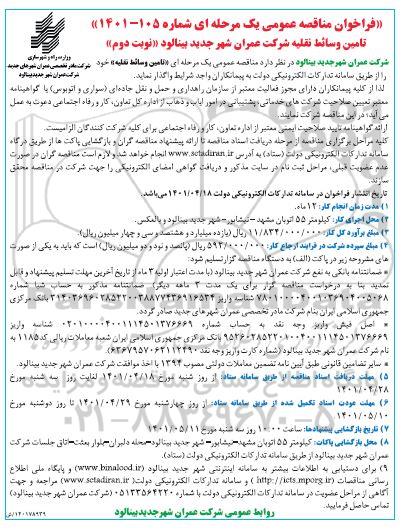 «فراخوان مناقصه عمومی یک مرحله ای شماره ۱۰۵-۱۴۰۱»
تامین وسائط نقلیه شرکت عمران شهر جدید بینالود «نوبت دوم»
وزارت راه و شهرسازی
شرکت مادر تخصصی عمران شهرهای جدید
شرکت عمران شهر جدید بینالود
شرکت عمران شهر جدید بینالود در نظر دارد مناقصه عمومی یک مرحله ای «تامین وسائط نقلیه» خود
را از طریق سامانه تدارکات الکترونیکی دولت به پیمانکاران واجد شرایط واگذار نماید.
لذا از کلیه پیمانکاران دارای مجوز فعالیت معتبر از سازمان راهداری و حمل و نقل جاده‌ای (سواری و اتوبوس) یا گواهینامه
معتبر تعیین صلاحیت شرکت های خدماتی، پشتیبانی در امور ایاب و ذهاب از اداره کل تعاون، کار و رفاه اجتماعی دعوت به عمل
می آید، در این مناقصه شرکت نمایند.
ارائه گواهینامه تایید صلاحیت ایمنی معتبر از اداره تعاون، کار و رفاه اجتماعی برای کلیه شرکت کنندگان الزامیست.
کلیه مراحل برگزاری مناقصه از مرحله دریافت اسناد مناقصه تا ارائه پیشنهاد مناقصه گران و بازگشایی پاکت ها از طریق درگاه
سامانه تدارکات الکترونیکی دولت (ستاد) به آدرس www.sctadiran.ir انجام خواهد شد و لازم است مناقصه گران در صورت
عدم عضویت قبلی، مراحل ثبت نام در سایت مذکور و دریافت گواهی امضای الکترونیکی را جهت شرکت در مناقصه محقق
سازند.
تاریخ انتشار فراخوان در سامانه تدارکات الکترونیکی دولت ۱۴۰۱/۰۴/۱۸ می‌باشد.
۱) مدت زمان انجام کار: ۱۲ ماه.
۲) محل اجرای کار: کیلومتر ۵۵ اتوبان مشهد-نیشابور- شهر جدید بینالود و بالعکس.
۳) مبلغ برآورد کل کار: ۱۱/۸۳۴/۰۰۰/۰۰۰ ریال (یازده میلیارد و هشتصد و سی و چهار میلیون ریال).
۴) مبلغ سپرده شرکت در فرایند ارجاع کار: ۵۹۲/۰۰۰/۰۰۰ ریال (پانصد و نود و دو میلیون ریال) است که باید به یکی از صورت
های مشروحه زیر در پاکت (الف) به دستگاه مناقصه گزار تسلیم شود:
* ضمانتنامه بانکی به نفع شرکت عمران شهر جدید بینالود (با مدت اعتبار اولیه ۳ ماه از تاریخ آخرین مهلت تسلیم پیشنهاد و قابل
تمدید بنا به درخواست مناقصه گزار برای یک مدت ۳ ماهه دیگر). ضمانتنامه مذکور به حساب شبا شماره
بانک مرکزی
جمهوری اسلامی ایران بنام شرکت مادر تخصصی عمران شهر های جدید صادر گردد.
* اصل فیش واریز وجه نقد به حساب شماره شناسه واریز
بانک مرکزی جمهوری اسلامی ایران شعبه معاملات ریالی کد ۱۱۸۵ به
نام شرکت عمران شهر جدید بینالود (شماره کارت واریز وجه نقد ).
* سایر تضامین قانونی طبق آیین نامه تضمین معاملات دولتی مصوب ۱۳۹۴ با اخذ موافقت شرکت عمران شهر جدید بینالود.
۵) مهلت دریافت اسناد مناقصه از طریق سامانه ستاد: از روز شنبه مورخ ۱۴۰۱/۰۴/۱۸ لغایت روز سه شنبه مورخ
۱۴۰۱/۰۴/۲۸
۶) مهلت عودت اسناد تکمیل شده از طریق سامانه ستاد: از روز چهارشنبه مورخ ۱۴۰۱/۰۴/۲۹ تا روز دوشنبه مورخ
۱۴۰۱/۰۵/۱۰
۷) تاریخ بازگشایی پیشنهادها: ساعت ۱۰:۰۰ روز سه شنبه مورخ ۱۴۰۱/۰۵/۱۱
۸) محل بازگشایی پاکات: کیلومتر ۵۵ اتوبان مشهد-نیشابور- شهر جدید بینالود-محله دلبران-بلوار بعثت-اتاق جلسات شرکت
عمران شهر جدید بینالود و سامانه تدارکات الکترونیکی دولت (ستاد).
۹) برای دستیابی به اطلاعات بیشتر به سامانه اینترنتی شهر جدید بینالود (www.binalood.ir) و پایگاه ملی اطلاع
رسانی مناقصات (http://iets.mporg.ir) و سامانه تدارکات الکترونیکی دولت (www.sctadiran.ir) مراجعه و جهت
آگاهی از مراحل عضویت در سامانه تدارکات الکترونیکی دولت با شماره ۰۵۱۳۳۵۶۴۲۲۰ (شرکت عمران شهر جدید بینالود)
تماس حاصل فرمایید.
روابط عمومی شرکت عمران شهر جدید بینالود